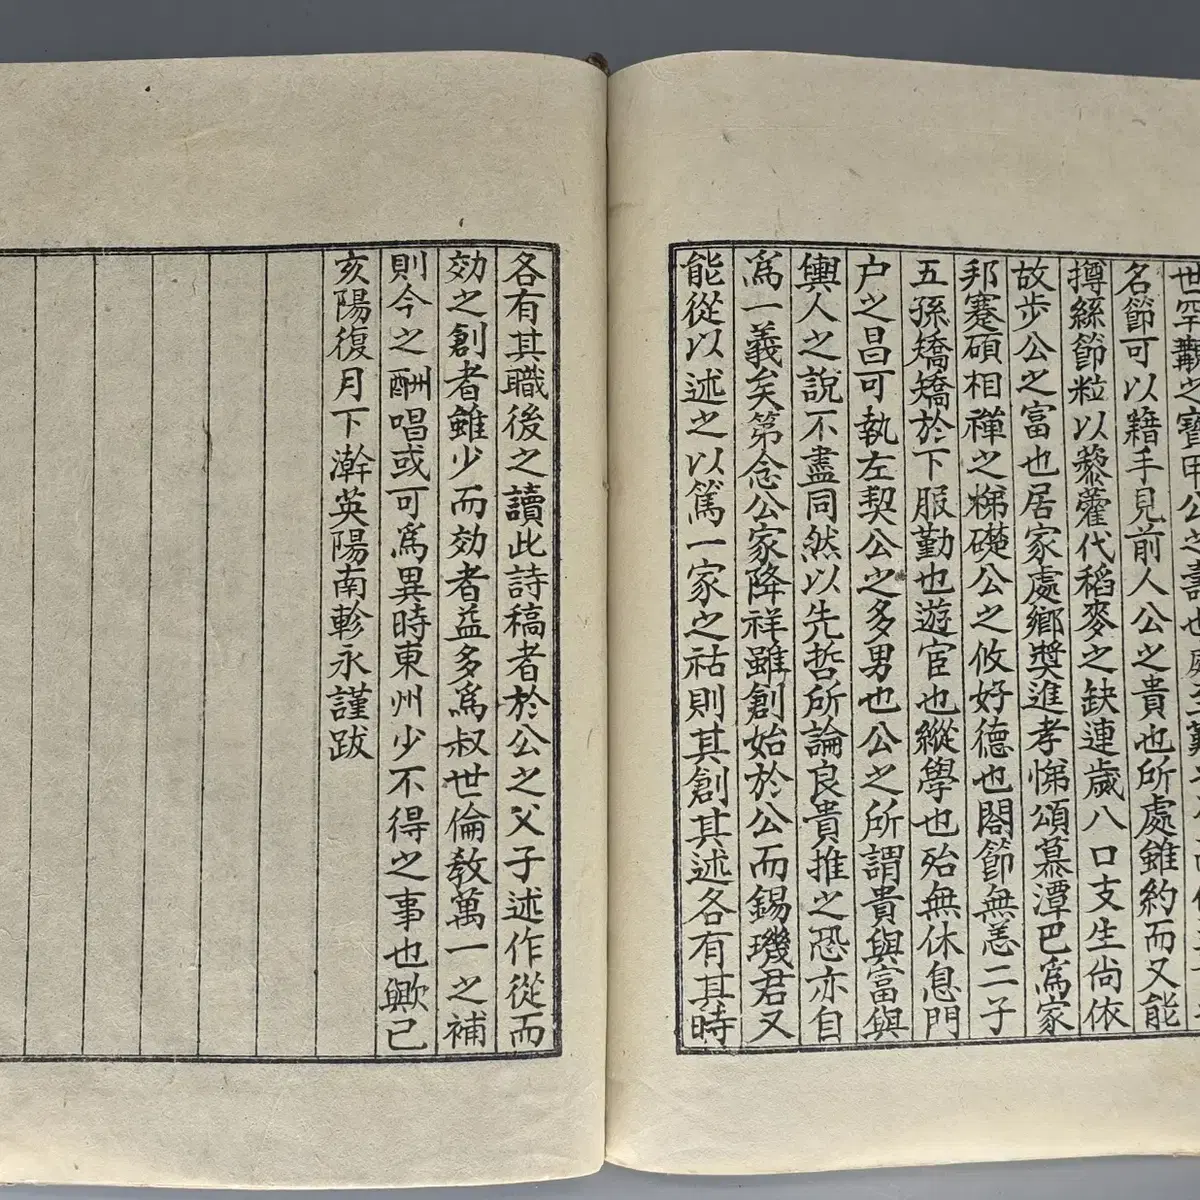 世罕覯之寶甲公之壽也處
名節可以藉手見前人公之貴也所處雖約而又能
撙絲節粒以藜藿代稻麥之缺連歲八口支生尙依
故步公之富也居家處鄉奬進孝悌頌慕潭巴爲家
邦蹇碩相禪之梯礎公之攸好德也閤節無恙二子
五孫矯矯於下服勤也遊宦也縱學也殆無休息門
户之昌可執左契公之多男也公之所謂貴與富與
輿人之說不盡同然以先哲所論良貴推之恐亦自
爲一義矣第念公家降祥雖創始於公而錫璣君又
能從以述之以篤一家之祜則其創其述各有其時
各有其職後之讀此詩稿者於公之父子述作從而
効之創者雖少而効者益多爲叔世倫敎萬一之補
則今之酬唱或可爲異時東州少不得之事也歟已
亥陽復月下澣英陽南軫永謹跋